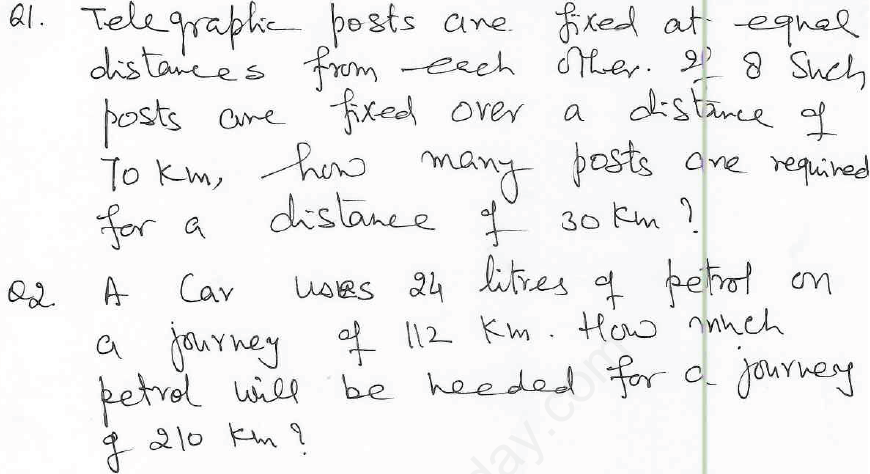 Q1. Telegraphic posts are fixed at equal
distances from each other. If 8 such
posts are fixed over a distance of
70 km, how many posts are required
for a distance of 30 km?
Q2. A car uses 24 litres of petrol on
a journey of 112 km. How much
petrol will be needed for a journey
of 210 km?
day.com